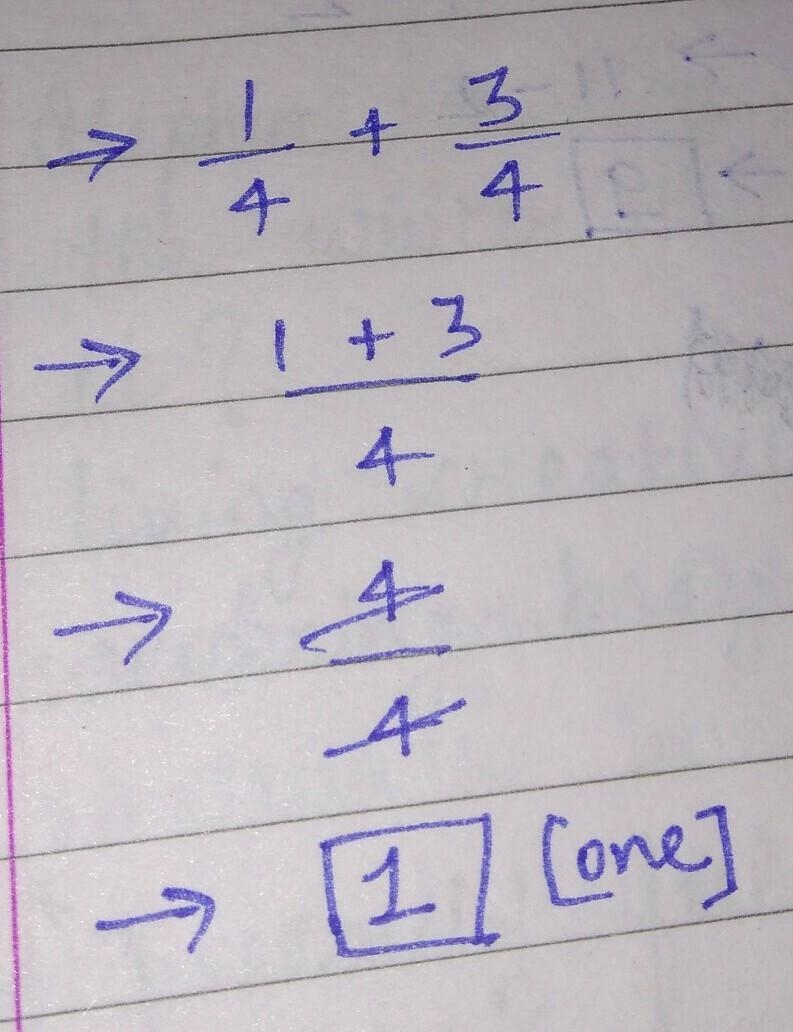 → 1/4 + 3/4
→ 1 + 3 / 4
→ 4/4
→ 1 [one]